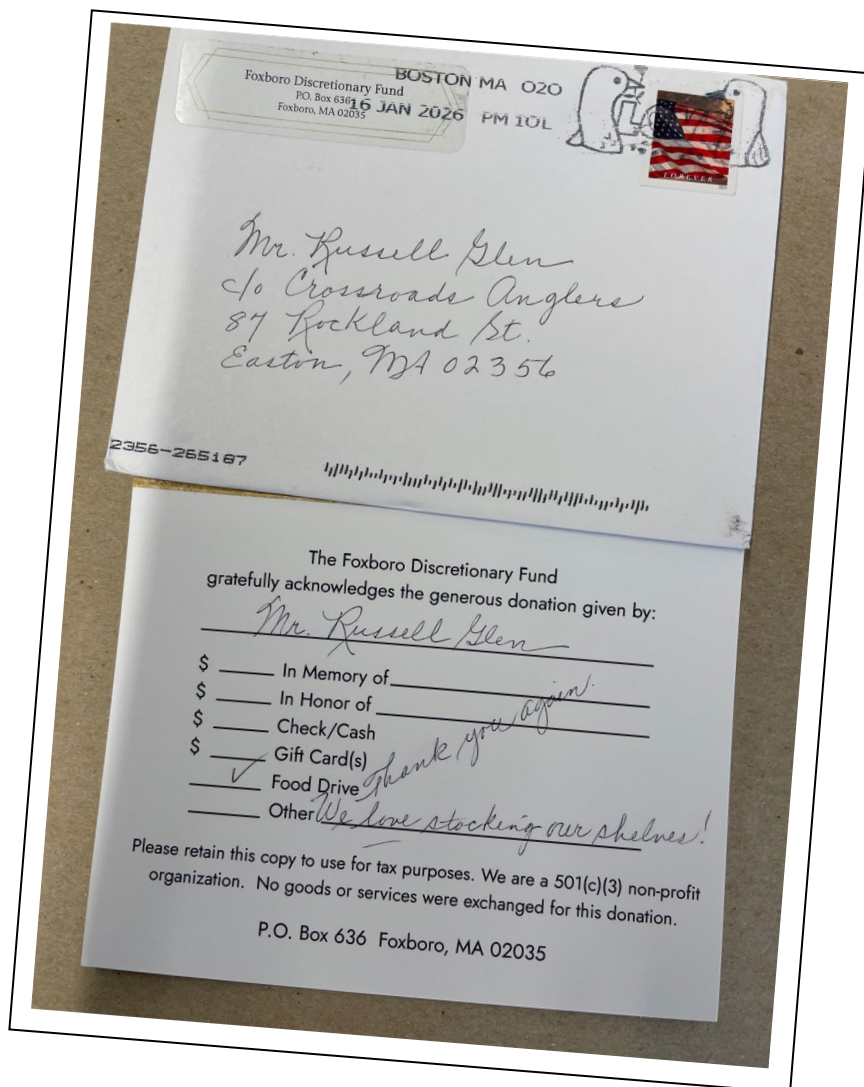 Foxboro Discretionary Fund
P.O. Box 636
Foxboro, MA 02035
BOSTON MA 020
16 JAN 2026 PM 10L
FOREVER
Mr. Russell Glen
c/o Crossroads Anglers
87 Rockland St.
Easton, MA 02356
2356-265187
The Foxboro Discretionary Fund
gratefully acknowledges the generous donation given by:
Mr. Russell Glen
$ ____ In Memory of
$ ____ In Honor of
$ ____ Check/Cash
$ ____ Gift Card(s)
✓ Food Drive Thank you again.
____ Other We love stocking our shelves!
Please retain this copy to use for tax purposes. We are a 501(c)(3) non-profit
organization. No goods or services were exchanged for this donation.
P.O. Box 636 Foxboro, MA 02035